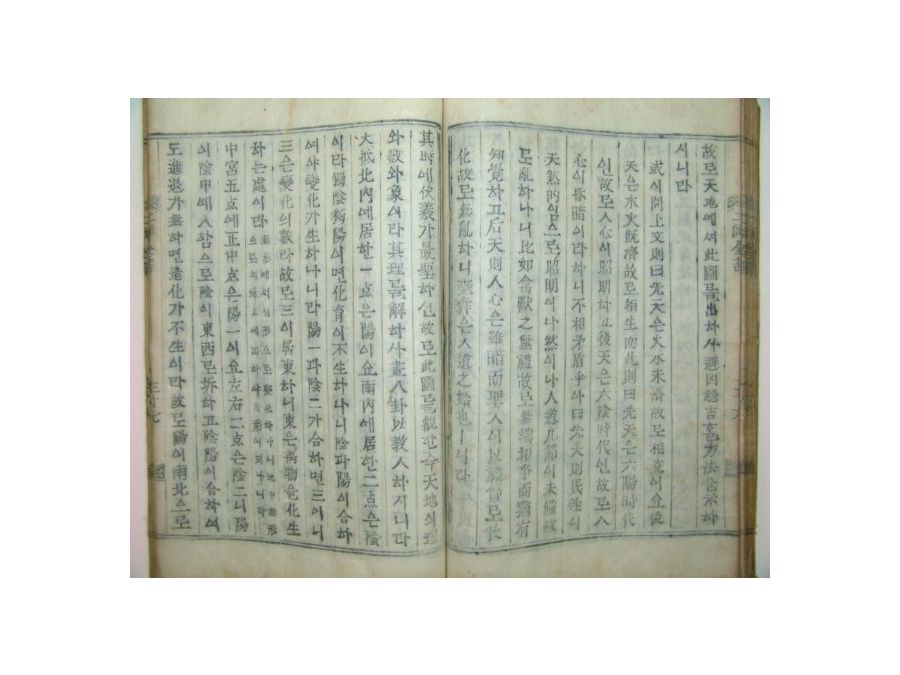 故로天地에셔此圖를出하사避凶趍吉할方法을示하
시니라
或이問上文則曰先天은火水未濟故로相克이요後
天은水火旣濟故로相生而此則曰先天은六陽時代
인故로人心이昭明하고後天은六陰時代인故로人
心이昏暗이라하니不相矛盾乎아曰先天則民性이
天然的임으로昭明이나然이나人道凡節이未備故
로亂하나니比如禽獸之無禮故로無端相爭而猶有
知覺하고后天則人心은雖暗而聖人이以禮節로敎
化故로無亂하니
其時에伏羲가最聖하신故로此圖를觀한즉天地의理
와數와象이라其理를解하사畫八卦以敎人하시니라
大抵北內에居한一点은陽이요南內에居한二点은陰
이라獨陰獨陽이면化育이不生하나니陰과陽이合하
여야變化가生하나니라陽一과陰二가合하면三이니
三은變化의數라故로三이居東하니東은萬物을化生
하는處이라
中宮五点에正中点은陽이요左右二点은陰二니陽
이陰中에入함으로陰이東西로坼하고陰陽이合하여
도進退가無하면造化가不生이라故로陽이南北으로